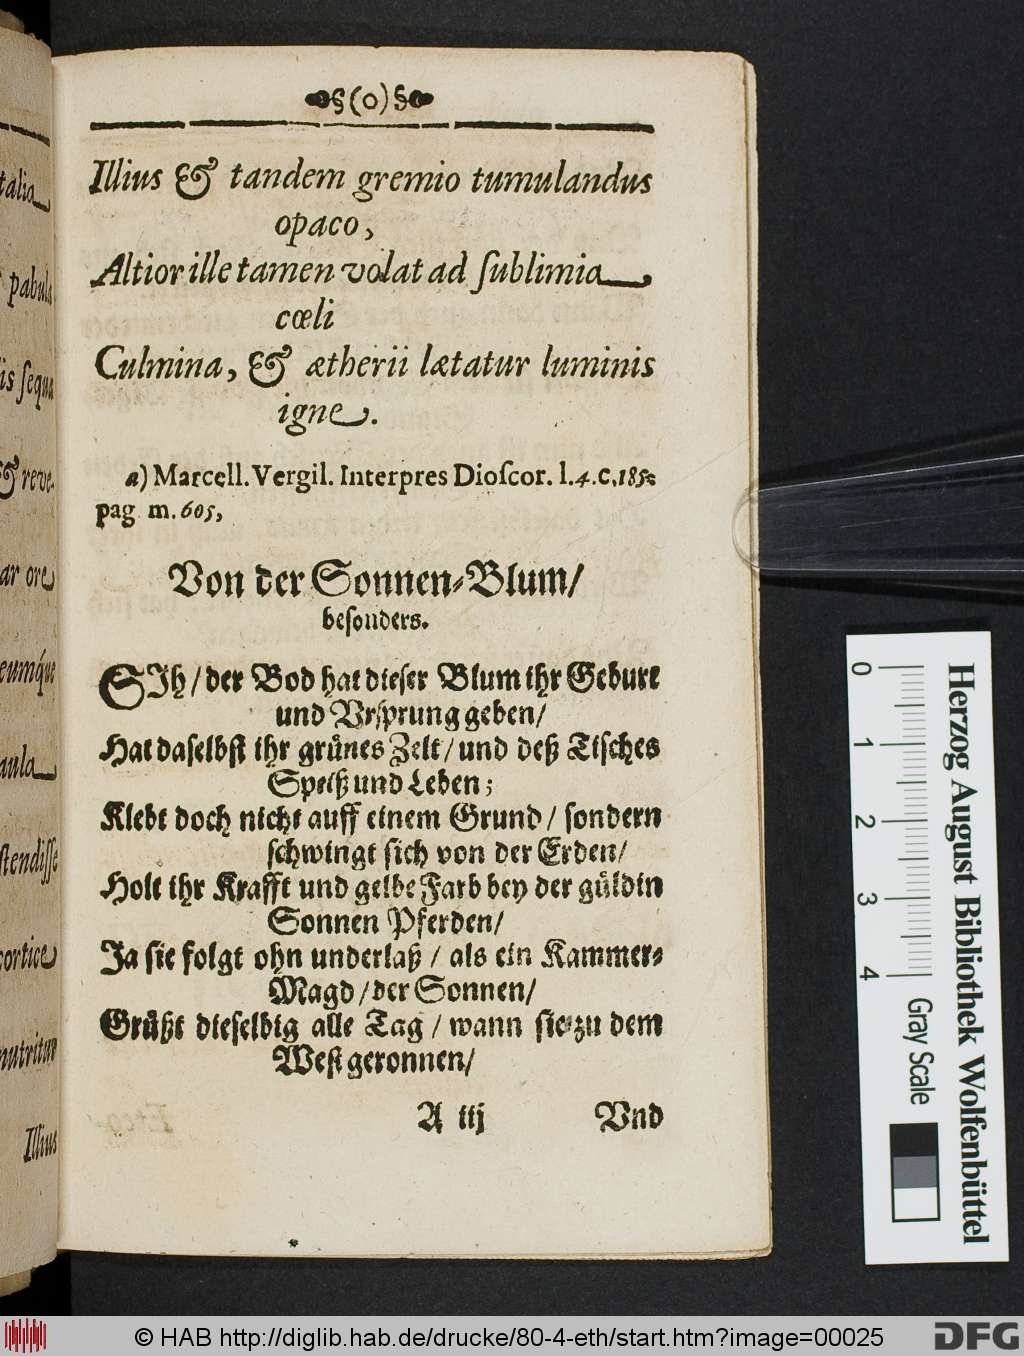 talia
pabula
is ſequa
& reve-
ar ore
eumq́ue
aula
ſtendiſſe
cortice
nutritur
Illius
§(o)§
Illius & tandem gremio tumulandus
opaco,
Altior ille tamen volat ad ſublimia
cœli
Culmina, & ætherii lætatur luminis
igne.
a) Marcell. Vergil. Interpres Dioſcor. l.4.c.185.
pag m. 605,
Von der Sonnen-Blum/
beſonders.
SIh / der Bod hat dieſer Blum ihr Geburt
und Vrſprung geben/
Hat daſelbſt ihr grünes Zelt / und deß Tiſches
Speiß und Leben;
Klebt doch nicht auff einem Grund / ſondern
ſchwingt ſich von der Erden/
Holt ihr Krafft und gelbe Farb bey der güldin
Sonnen Pferden/
Ja ſie folgt ohn underlaß / als ein Kammer-
Magd / der Sonnen/
Grüßt dieſelbig alle Tag / wann ſie zu dem
Weſt geronnen/
A iij Vnd
0 1 2 3 4
Herzog August Bibliothek Wolfenbüttel
Gray Scale
© HAB http://diglib.hab.de/drucke/80-4-eth/start.htm?image=00025
DFG